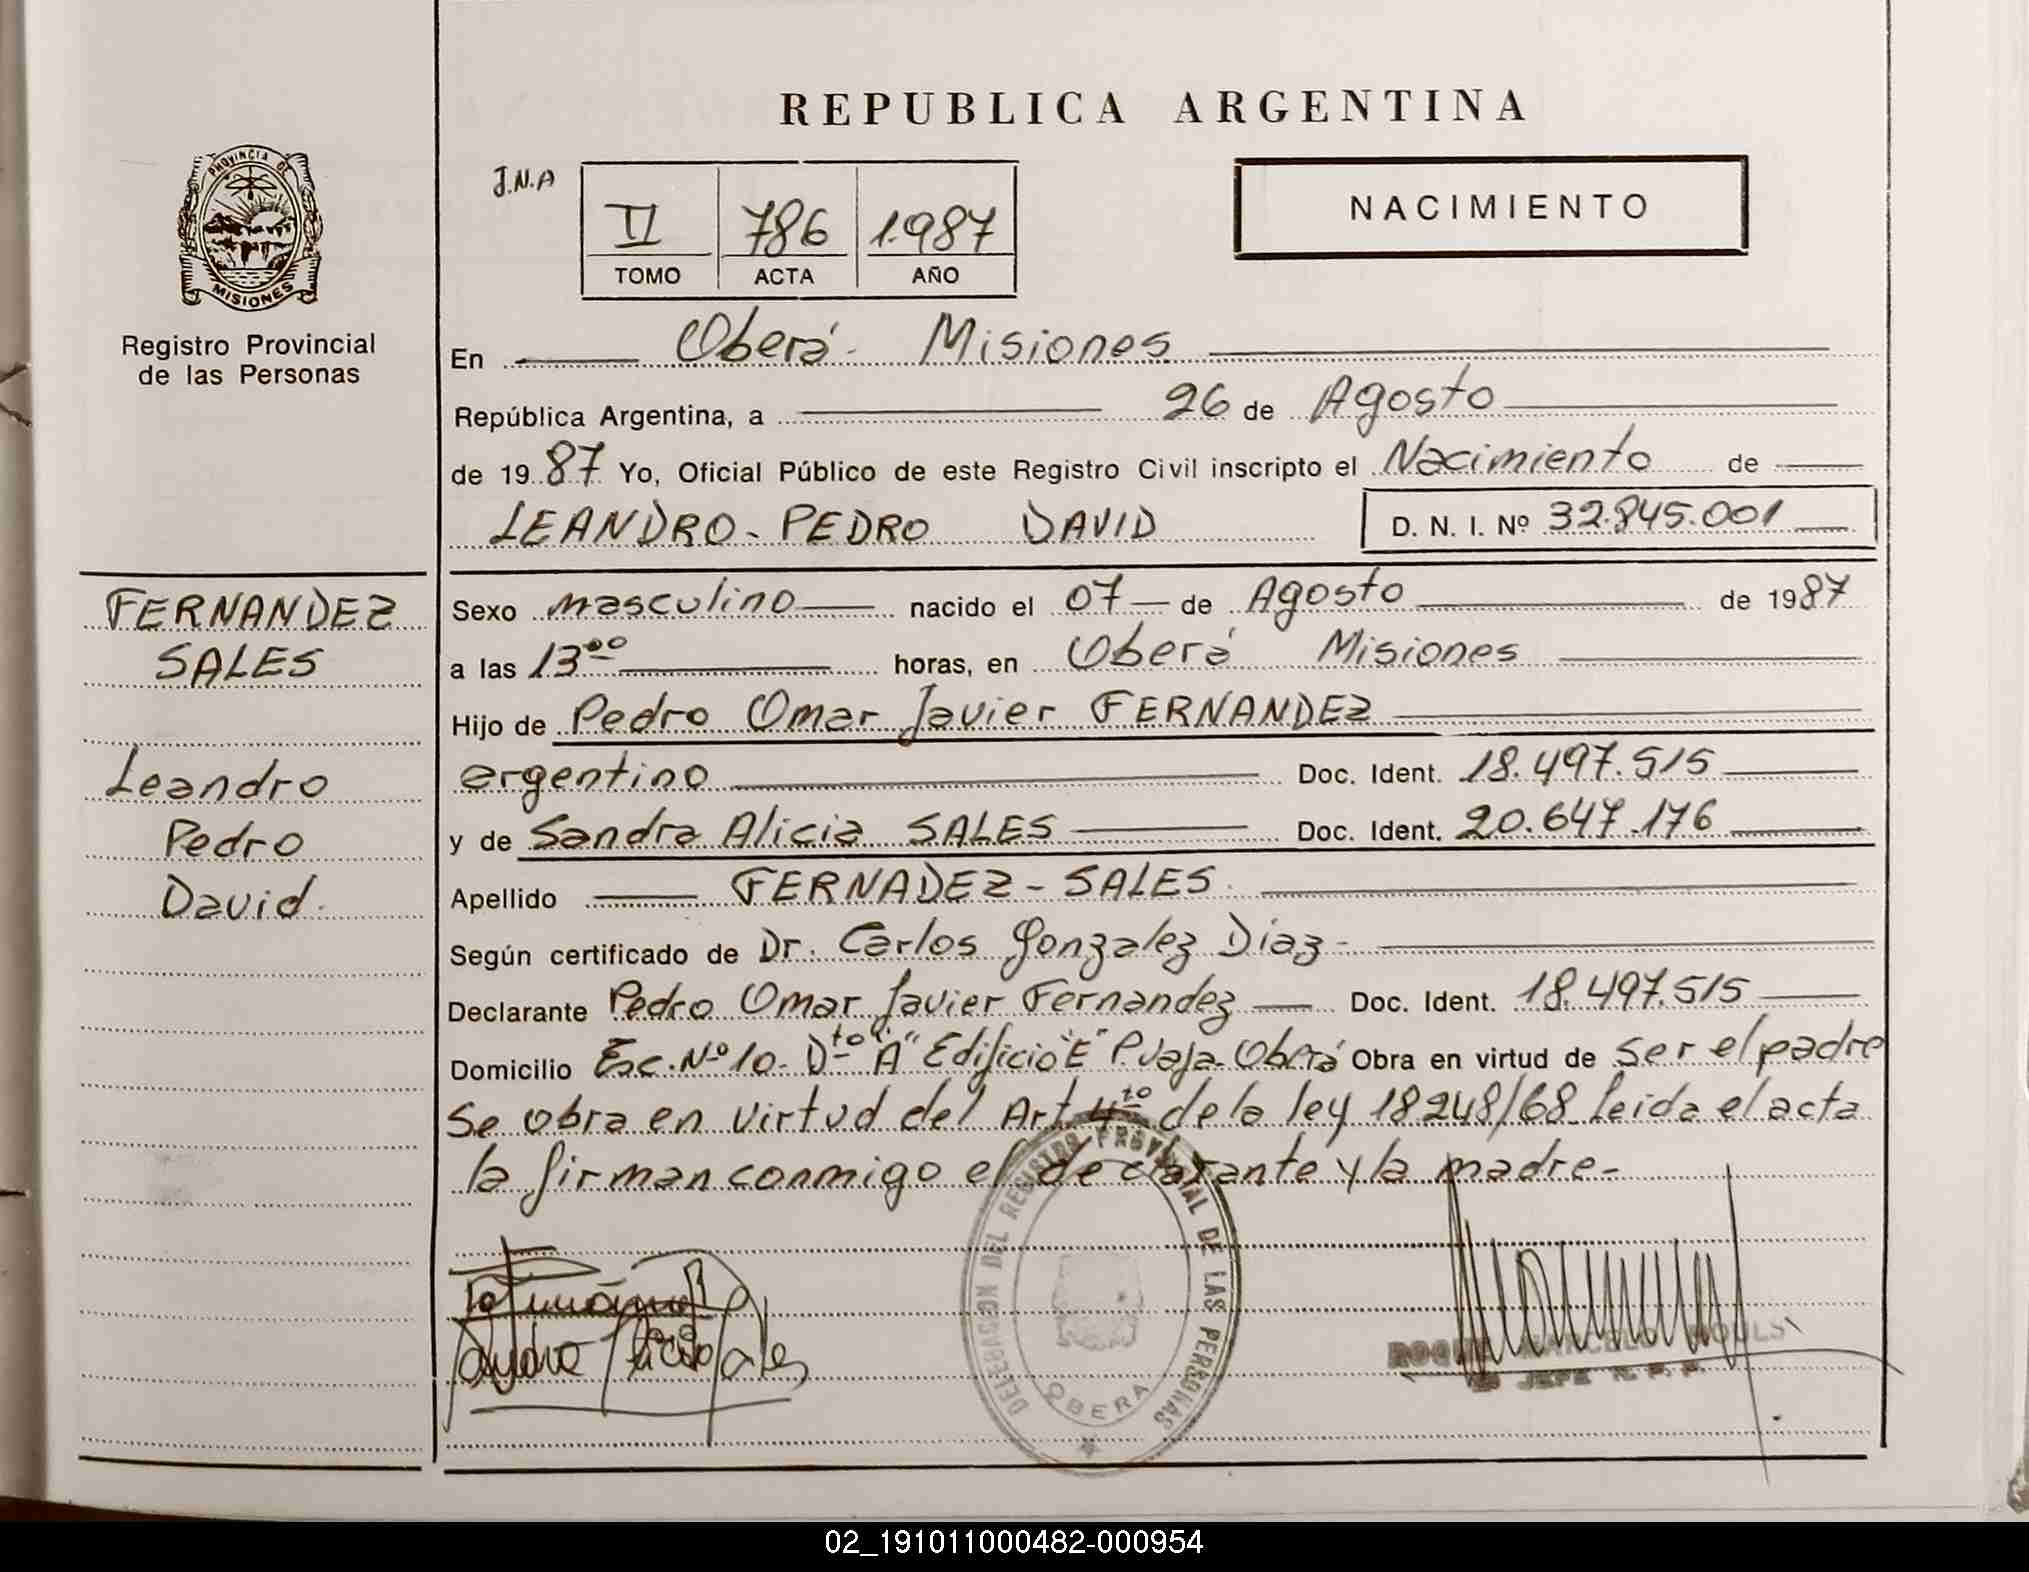 REPUBLICA ARGENTINA
PROVINCIA DE
MISIONES
Registro Provincial
de las Personas
J.N.A
II 786 1.987
TOMO ACTA AÑO
NACIMIENTO
En Oberá - Misiones
República Argentina, a 26 de Agosto
de 19 87 Yo, Oficial Público de este Registro Civil inscripto el Nacimiento de
LEANDRO - PEDRO DAVID D. N. I. Nº 32.845.001
FERNANDEZ
SALES
Leandro
Pedro
David.
Sexo masculino nacido el 07 de Agosto de 1987
a las 13ºº horas, en Oberá Misiones
Hijo de Pedro Omar Javier FERNANDEZ
argentino Doc. Ident. 18.497.515
y de Sandra Alicia SALES Doc. Ident. 20.647.176
Apellido FERNADEZ - SALES.
Según certificado de Dr. Carlos Gonzalez Diaz -
Declarante Pedro Omar Javier Fernandez Doc. Ident. 18.497.515
Domicilio Esc. Nº 10 - Dto "A" Edificio "E" Oberá Obra en virtud de ser el padre
Se obra en virtud del Art. 4to de la ley 18248/68 - Leida el acta
la firman conmigo el declarante y la madre -
DELEGACION DEL REGISTRO PROVINCIAL DE LAS PERSONAS
OBERA
Sandra Alicia Sales
JEFE R. P. P.
02_191011000482-000954